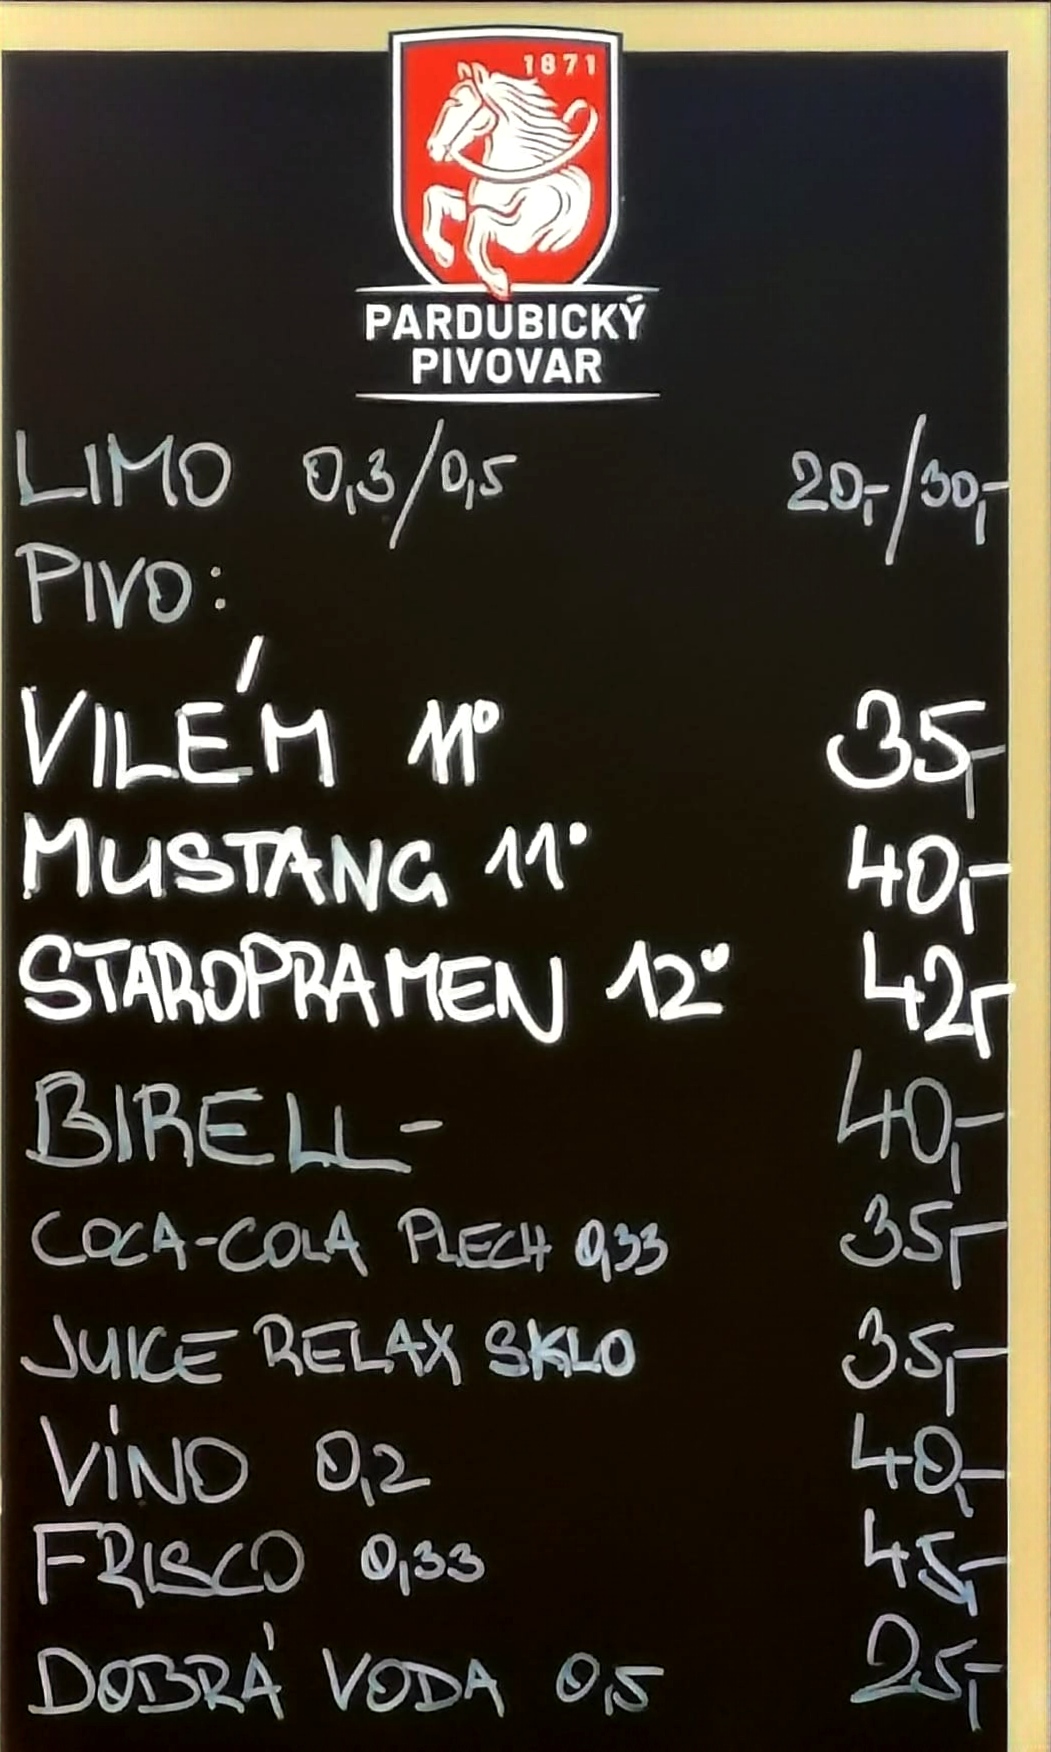 1871
PARDUBICKÝ
PIVOVAR
LIMO 0,3/0,5 20,-/30,-
PIVO:
VILÉM 11° 35,-
MUSTANG 11° 40,-
STAROPRAMEN 12° 42,-
BIRELL- 40,-
COCA-COLA PLECH 0,33 35,-
JUICE RELAX SKLO 35,-
VÍNO 0,2 40,-
FRISCO 0,33 45,-
DOBRÁ VODA 0,5 25,-